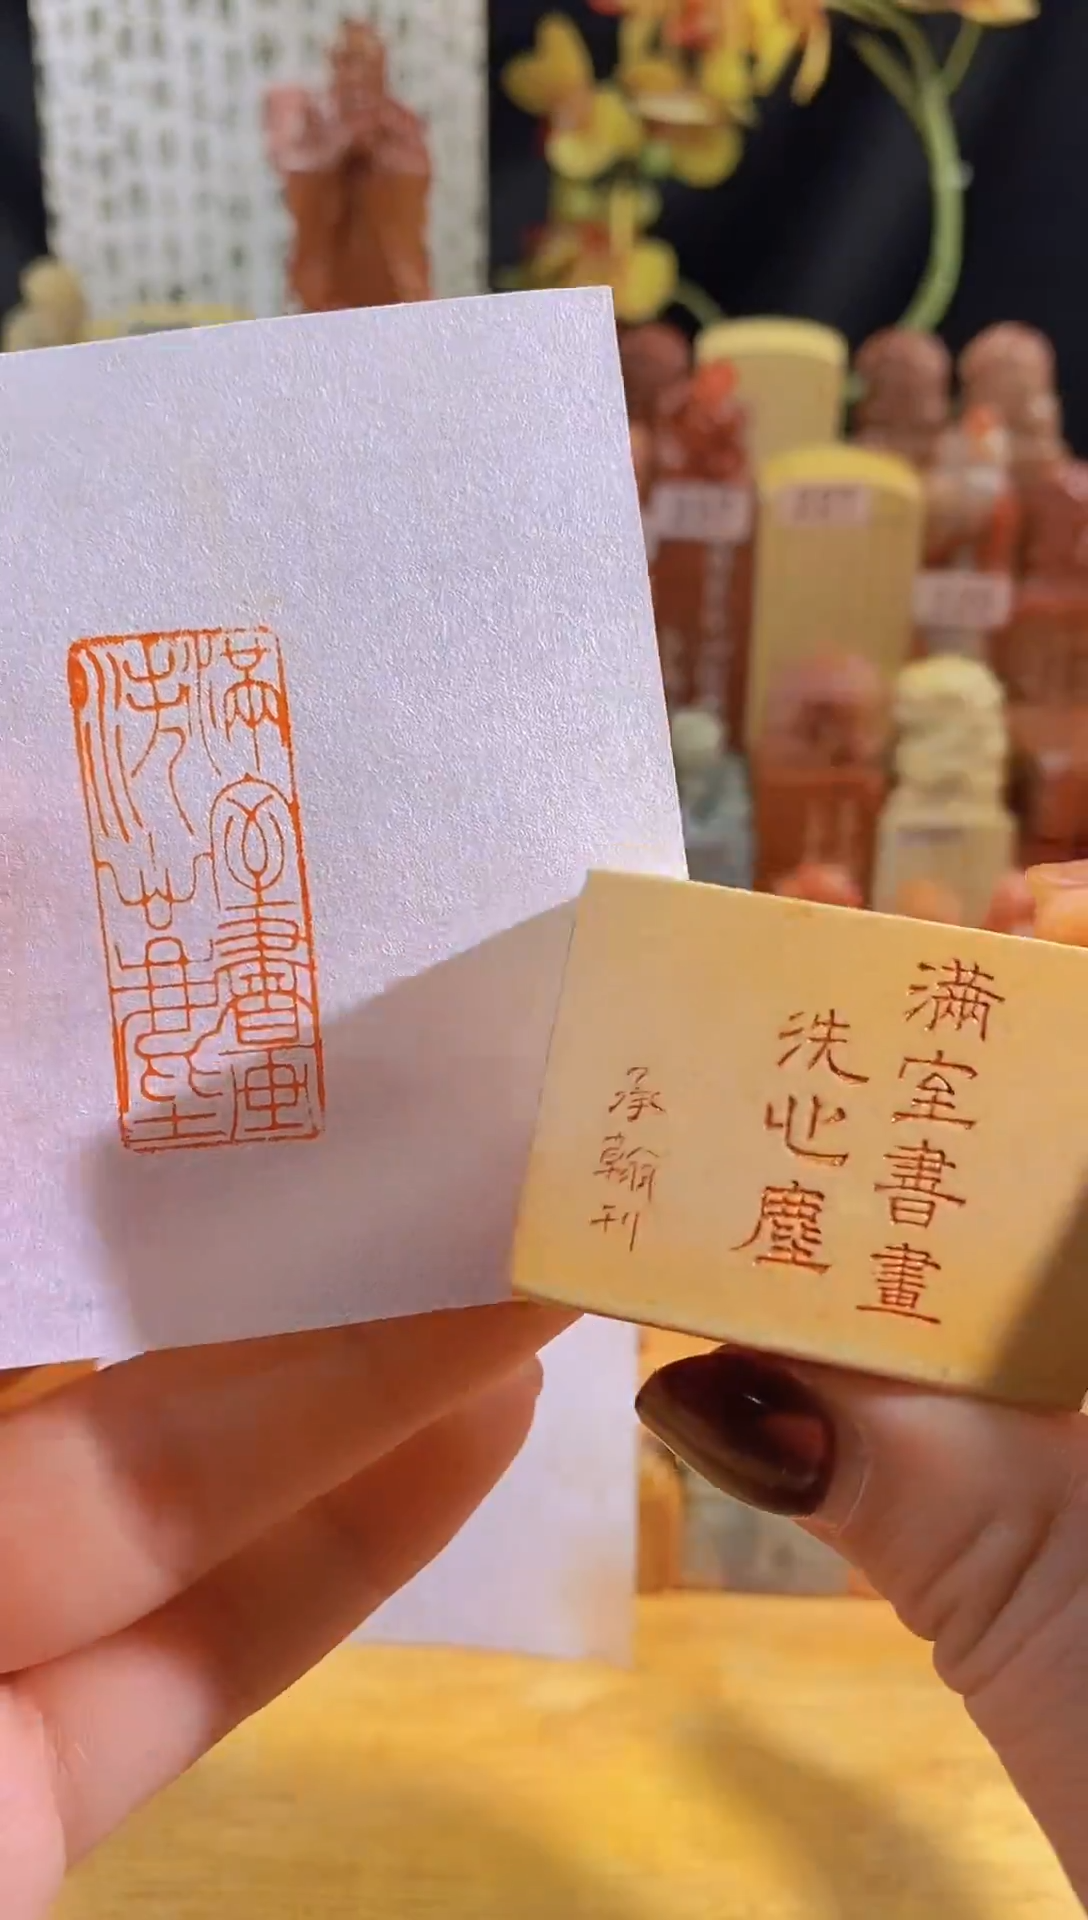 滿室書畫
洗心塵
滿室書畫
洗心塵
承翰刊